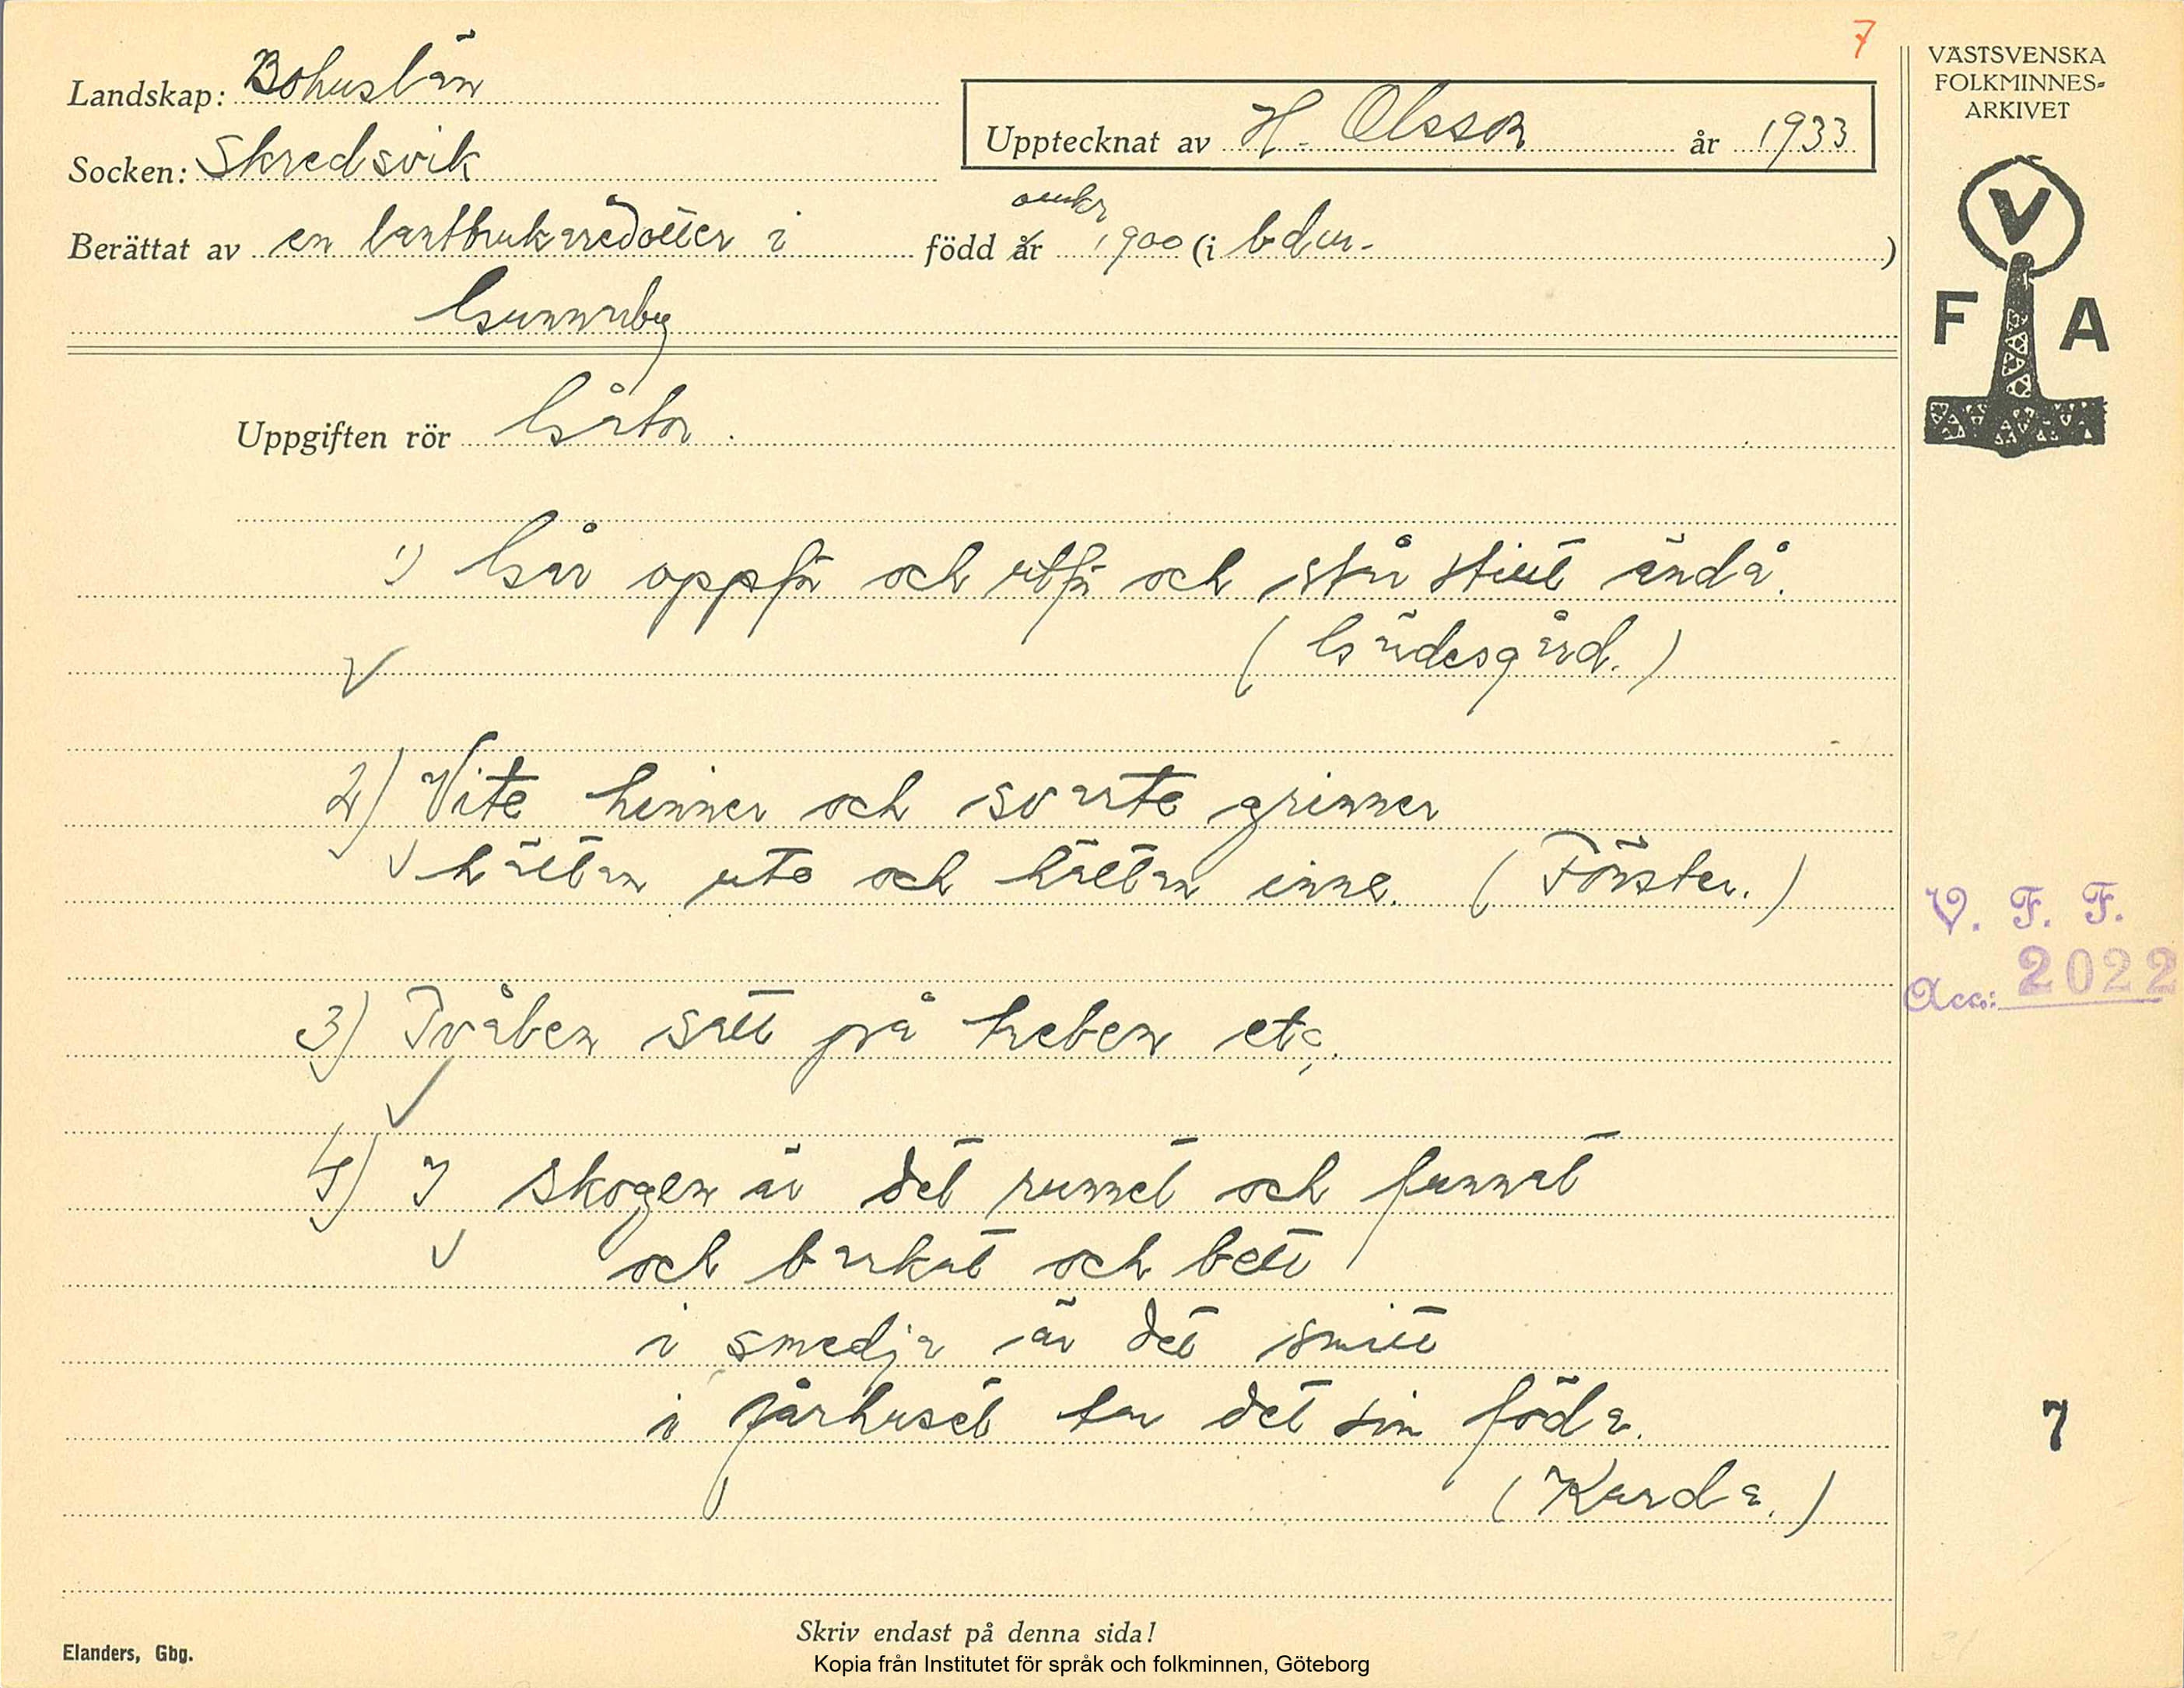 7
Landskap: Bohuslän
VÄSTSVENSKA
FOLKMINNES-
ARKIVET
Upptecknat av H. Olsson år 1933
Socken: Skredsvik
omkr
Berättat av en lantbrukaredotter i född år 1900 (i b-dm.)
Gunnarby
V
F A
Uppgiften rör Gåtor.
1) Går oppför och utför och står still ändå.
(Gärdesgård.)
2) Vite hinner och svarte grinner
hällan ute och hällan inne. (Fönster.)
V. F. F.
Acc: 2022
3) Tvåben satt på treben etc.
4) I skogen är det runnet och funnat
och barkat och bett
i smedja är det smitt
i fårhuset tar det sin föda.
7
(Karda.)
Skriv endast på denna sida!
Elanders, Gbg.
Kopia från Institutet för språk och folkminnen, Göteborg